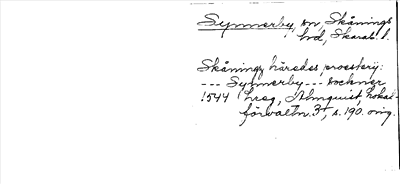 Synnerby, sn, Skånings
hd, Skarab. l.
Skånings häredes prosterij:
--- Synnerby --- sockner
1544 (reg, Almquist, Lokal-
förvaltn. 3, s. 190. orig.